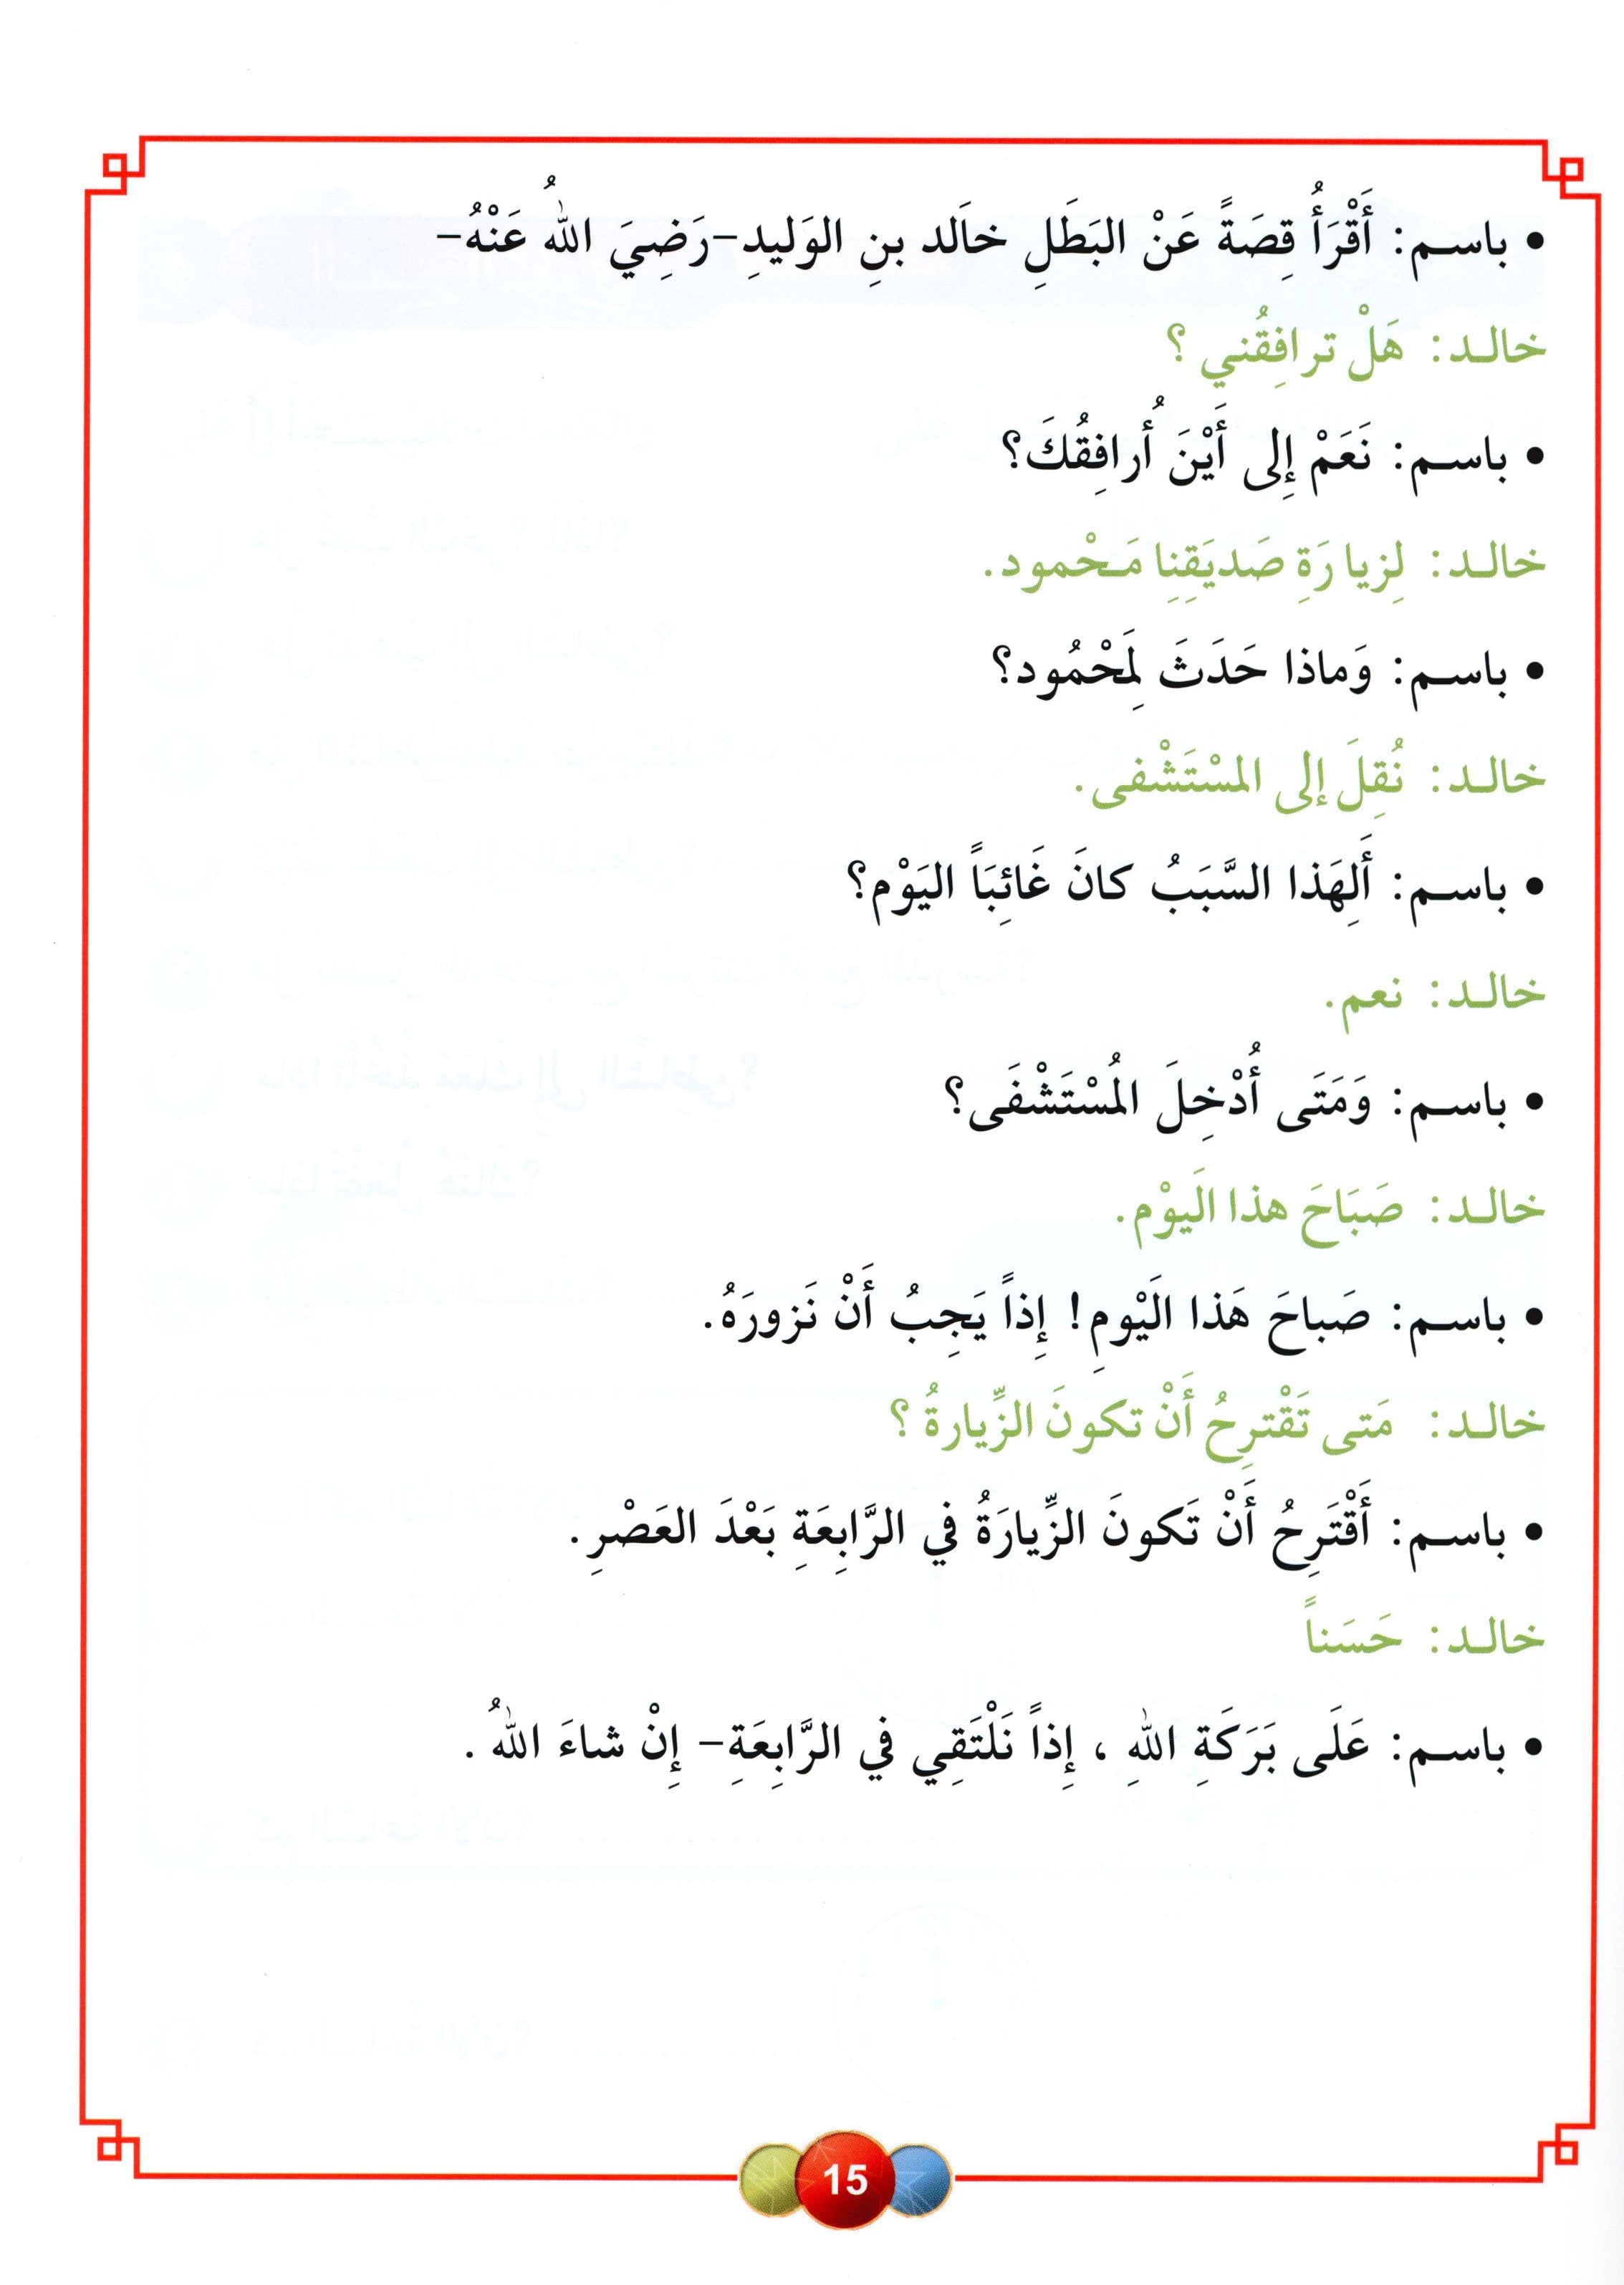 • باسم: أَقْرَأُ قِصَةً عَنْ البَطَلِ خاَلد بنِ الوَليدِ-رَضِيَ اللهُ عَنْهُ-
خالد: هَلْ ترافِقُني ؟
• باسم: نَعَمْ إِلى أَيْنَ أُرافِقُكَ؟
خالد: لِزيارَةِ صَديَقِنِا مَحْمود.
• باسم: وَماذا حَدَثَ لِمَحْمُود؟
خالد: نُقِلَ إلى المسْتَشْفى.
• باسم: أَلِهَذا السَّبَبُ كانَ غَائِبَاً اليَوْم؟
خالد: نعم.
• باسم: وَمَتَى أُدْخِلَ المُسْتَشْفَى؟
خالد: صَبَاحَ هذا الَيوْم.
• باسم: صَباحَ هَذا الَيْومِ! إِذاً يَجِبُ أَنْ نَزورَهُ.
خالد: مَتى تَقْترِحُ أَنْ تكونَ الزِّيارةُ ؟
• باسم: أَقْتَرِحُ أَنْ تَكونَ الزِّيارَةُ في الرَّابِعَةِ بَعْدَ العَصْرِ.
خالد: حَسَناً
• باسم: عَلَى بَرَكَةِ اللهِ ، إِذاً نَلْتَقِي في الرَّابِعَةِ- إِنْ شاءَ اللهُ .
15